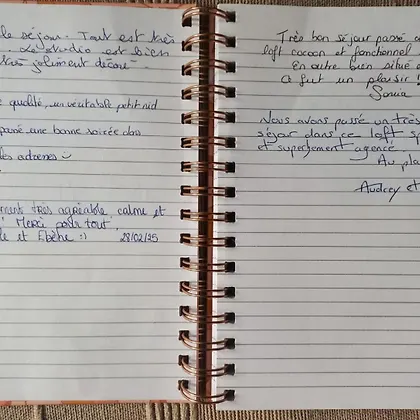 le séjour. Tout est très
. Le studio est bien
très joliment décoré.
e qualité, un véritable petit nid
passé une bonne soirée dans
les adresses
ment très agréable, calme et
! Merci pour tout,
le et Ebène :) 28/02/25
Très bon séjour passé
loft cocoon et fonctionnel
En outre bien situé
Ce fut un plaisir !
Sonia
Nous avons passé un très
séjour dans ce loft sp
et superbement agencé.
Au pla
Audrey et